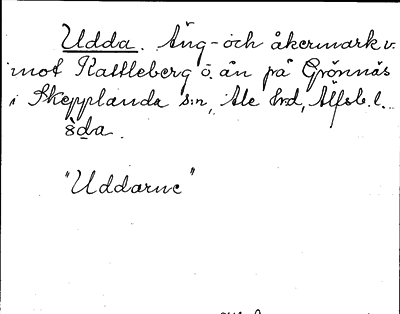 Udda. Äng- och åkermark v.
mot Kattleberg ö. ån på Grönnäs
i Skepplanda s:n, Ale hd, Älfsb. l.
åda.
"Uddarne"